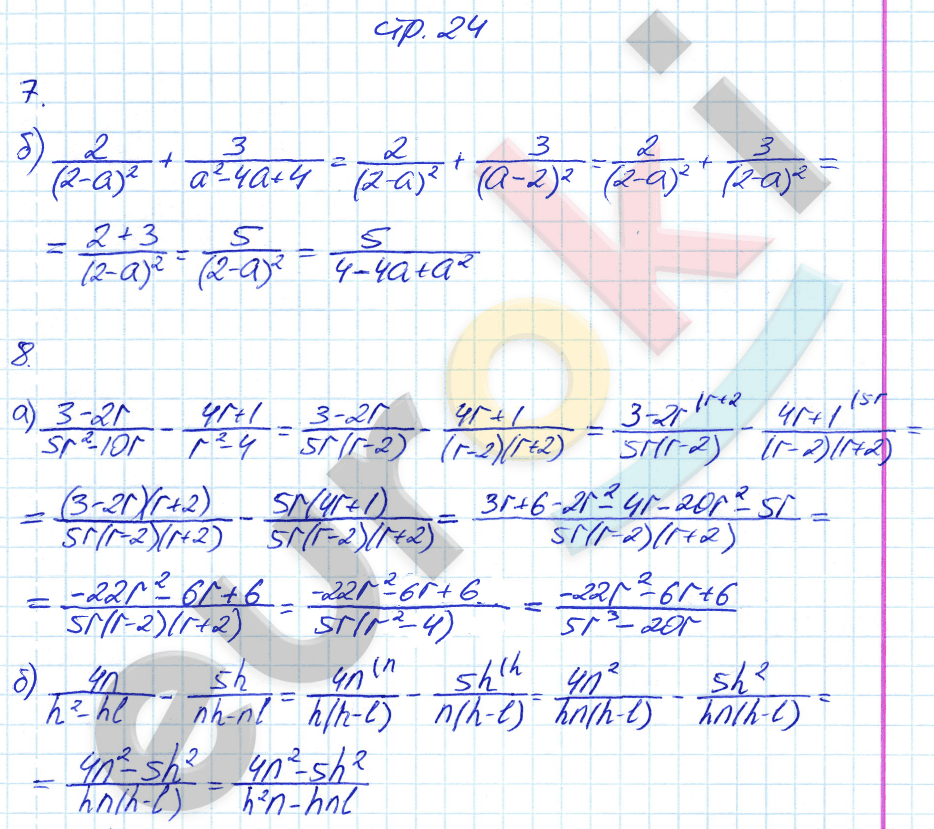 стр. 24
7.
б) 2/(2-a)² + 3/(a²-4a+4) = 2/(2-a)² + 3/(a-2)² = 2/(2-a)² + 3/(2-a)² =
= (2+3)/(2-a)² = 5/(2-a)² = 5/(4-4a+a²)
8.
а) (3-2r)/(5r²-10r) - (4r+1)/(r²-4) = (3-2r)/(5r(r-2)) - (4r+1)/((r-2)(r+2)) = (3-2r)^(r+2/(5r(r-2)) - (4r+1)^(5r/((r-2)(r+2)) =
= (3-2r)(r+2)/(5r(r-2)(r+2)) - 5r(4r+1)/(5r(r-2)(r+2)) = (3r+6-2r²-4r-20r²-5r)/(5r(r-2)(r+2)) =
= (-22r²-6r+6)/(5r(r-2)(r+2)) = (-22r²-6r+6)/(5r(r²-4)) = (-22r²-6r+6)/(5r³-20r)
б) 4n/(h²-hl) - 5h/(nh-nl) = 4n^(n/(h(h-l)) - 5h^(h/(n(h-l)) = 4n²/(hn(h-l)) - 5h²/(hn(h-l)) =
= (4n²-5h²)/(hn(h-l)) = (4n²-5h²)/(h²n-hnl)
euroki